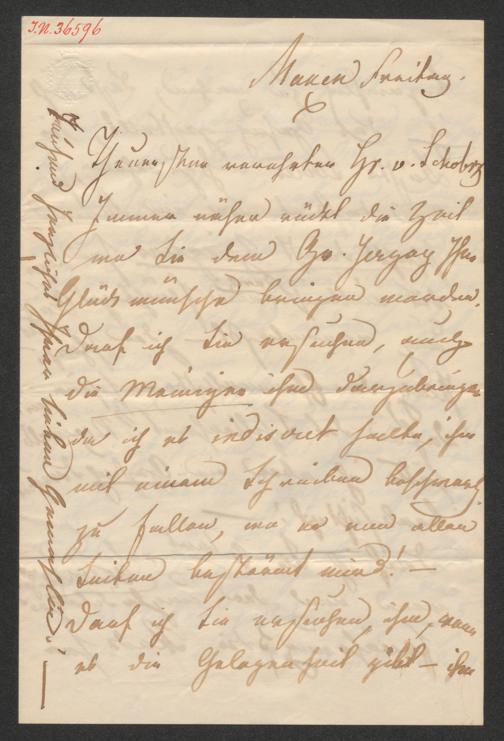 I.N. 36596
Freitag.
Theuerster verehrter Hr. v. Schober
Immer näher rückt die Zeit
wo Sie dem Gr. Herzog Ihre
Glückwünsche bringen werden.
Darf ich Sie ersuchen, auch
die Meinigen ihm darzubringen
da ich es indiscret halte, ihm
mit einem Schreiben beschwerl.
zu fallen, wo er von allen
Seiten bestürmt wird! —
Darf ich Sie ersuchen, ihm, wenn
es die Gelegenheit gibt — ihm
Tausend herzliches Ihrer lieben Gemahlin! —